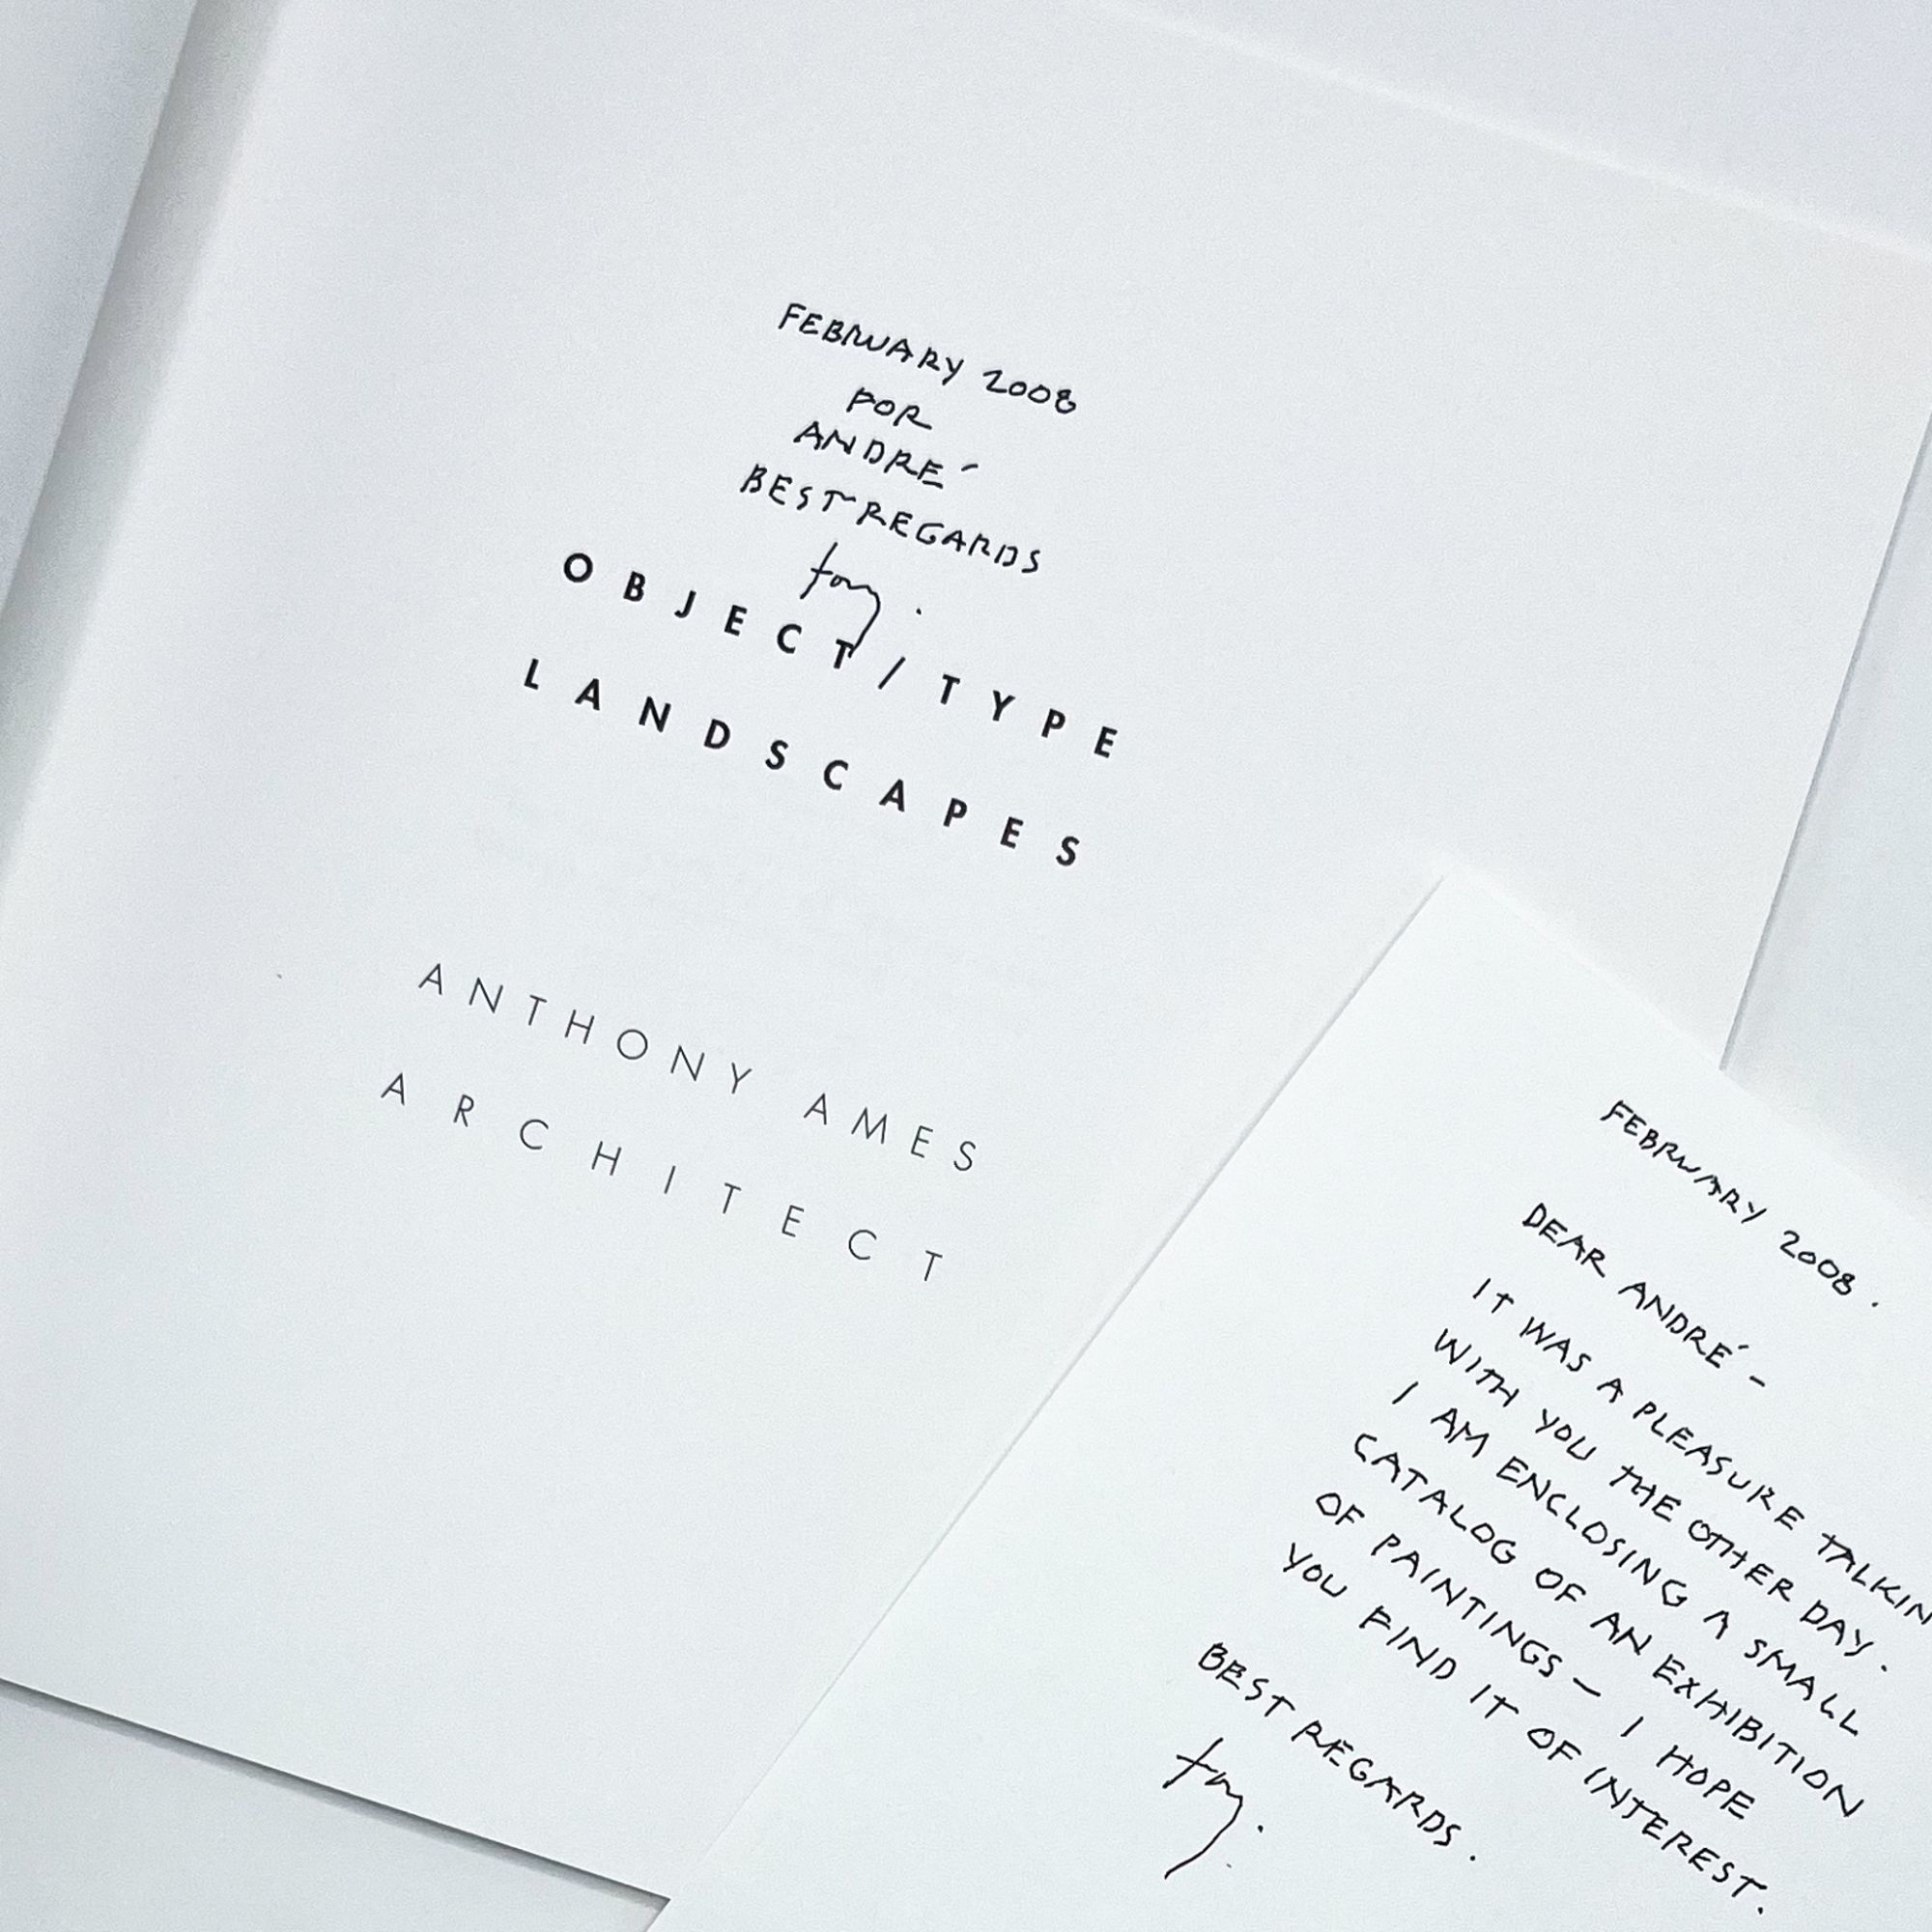 FEBRUARY 2008
POR
ANDRÉ
BEST REGARDS
tony.
OBJECT/TYPE
LANDSCAPES
ANTHONY AMES
ARCHITECT
FEBRUARY 2008.
DEAR ANDRÉ –
IT WAS A PLEASURE TALKIN
WITH YOU THE OTHER DAY.
I AM ENCLOSING A SMALL
CATALOG OF AN EXHIBITION
OF PAINTINGS – I HOPE
YOU FIND IT OF INTEREST.
BEST REGARDS.
tony.